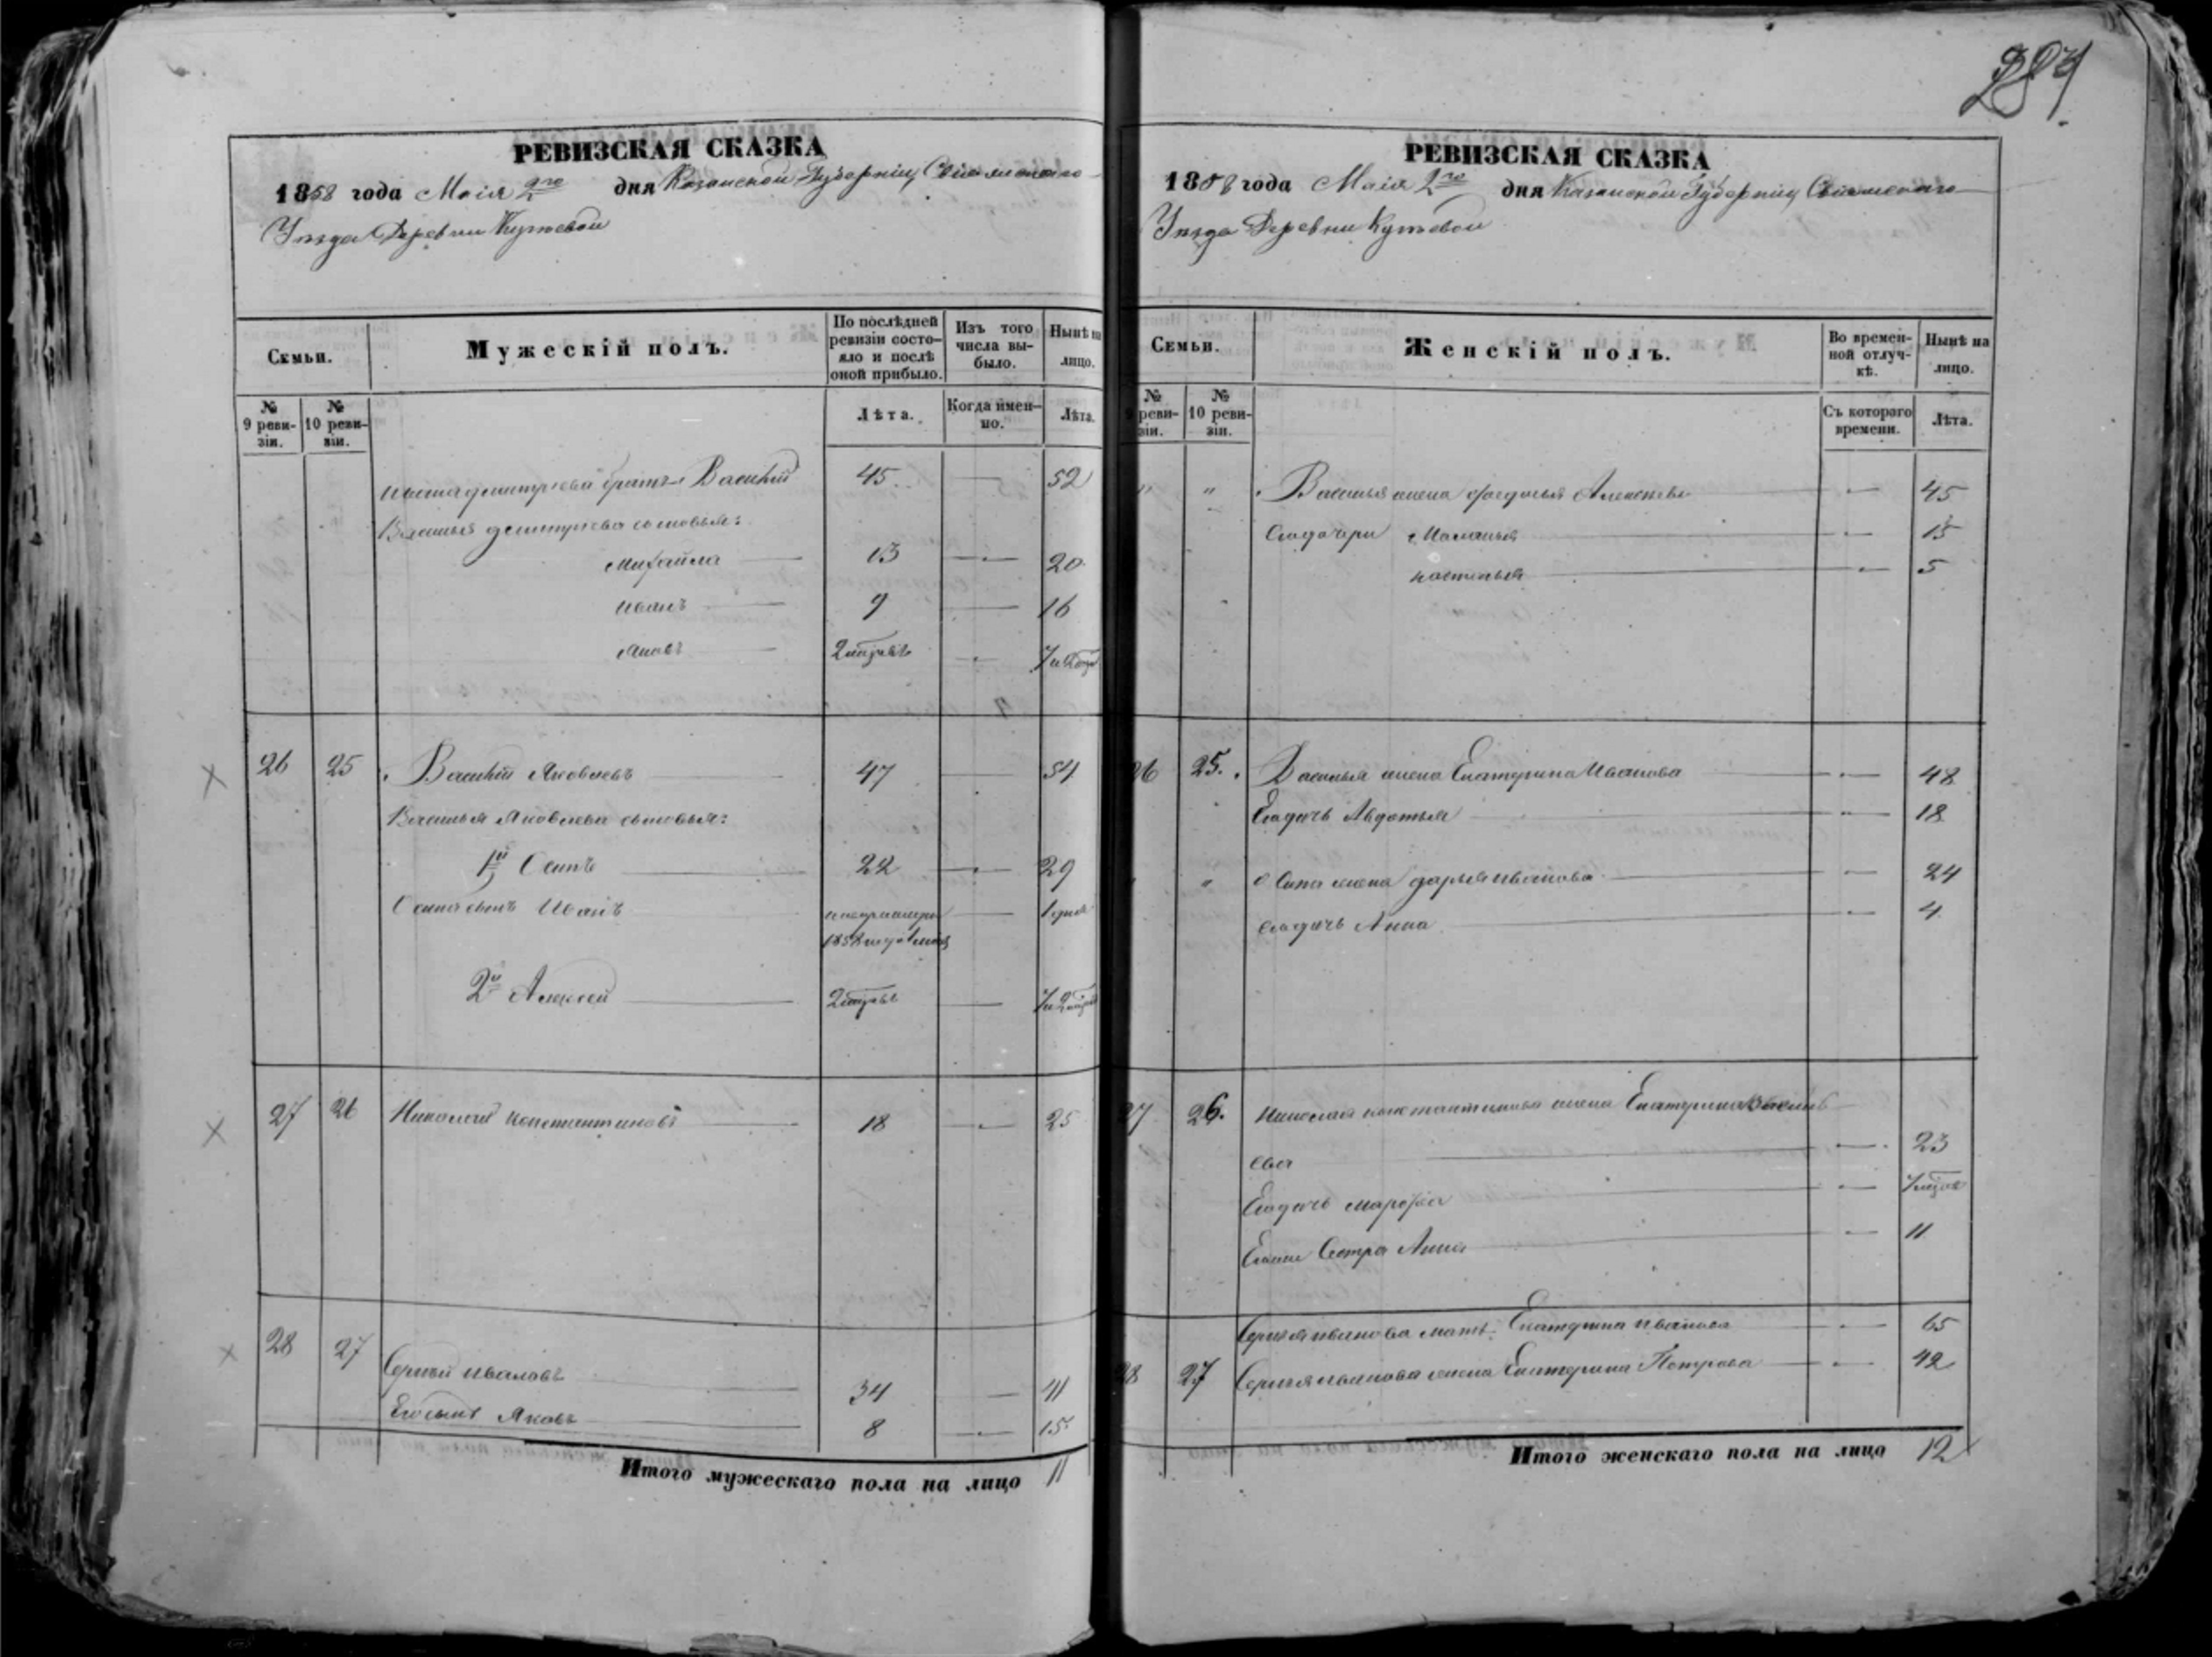 284
РЕВИЗСКАЯ СКАЗКА
1858 года Маія 2го дня Казанской Губерніи, Свіяжскаго
Уѣзда Деревни Кутевой
Семьи.
Мужескій полъ.
По послѣдней ревизіи состояло и послѣ оной прибыло.
Изъ того числа выбыло.
Нынѣ на лицо.
№ 9 ревизіи.
№ 10 ревизіи.
Лѣта.
Когда именно.
Лѣта.
дмитріева братъ Василій 45 52
Василья дмитріева сыновья:
Михайла 13 20
Иванъ 9 16
Яковъ 7
26 25 Василій Яковлевъ 47 54
Василья Яковлева сыновья:
1й Осипъ 22 29
Осипа сынъ Иванъ
2й Алексей
27 26 Николай Константиновъ 18 25
28 27 Сергей Ивановъ 34 41
Его сынъ Яковъ 8 15
Итого мужескаго пола на лицо 11
РЕВИЗСКАЯ СКАЗКА
1858 года Маія 2го дня Казанской Губерніи, Свіяжскаго
Уѣзда Деревни Кутевой
Семьи.
Женскій полъ.
Во временной отлучкѣ.
Нынѣ на лицо.
№ 9 ревизіи.
№ 10 ревизіи.
Съ котораго времени.
Лѣта.
" " Василья жена Федосья Алексѣева 45
Его дочери Маланья 15
Настасья 5
26 25. Василья жена Екатерина Иванова 48
Его дочь Авдотья 18
" Осипа жена Дарья Иванова 24
Его дочь Анна 4
27 26. Николая Константинова жена Екатерина Василь
ева 23
Его дочь Марфа
Его же Сестра Анна 11
Сергея Иванова мать Екатерина Иванова 65
28 27 Сергея Иванова жена Екатерина Петрова 42
Итого женскаго пола на лицо 12